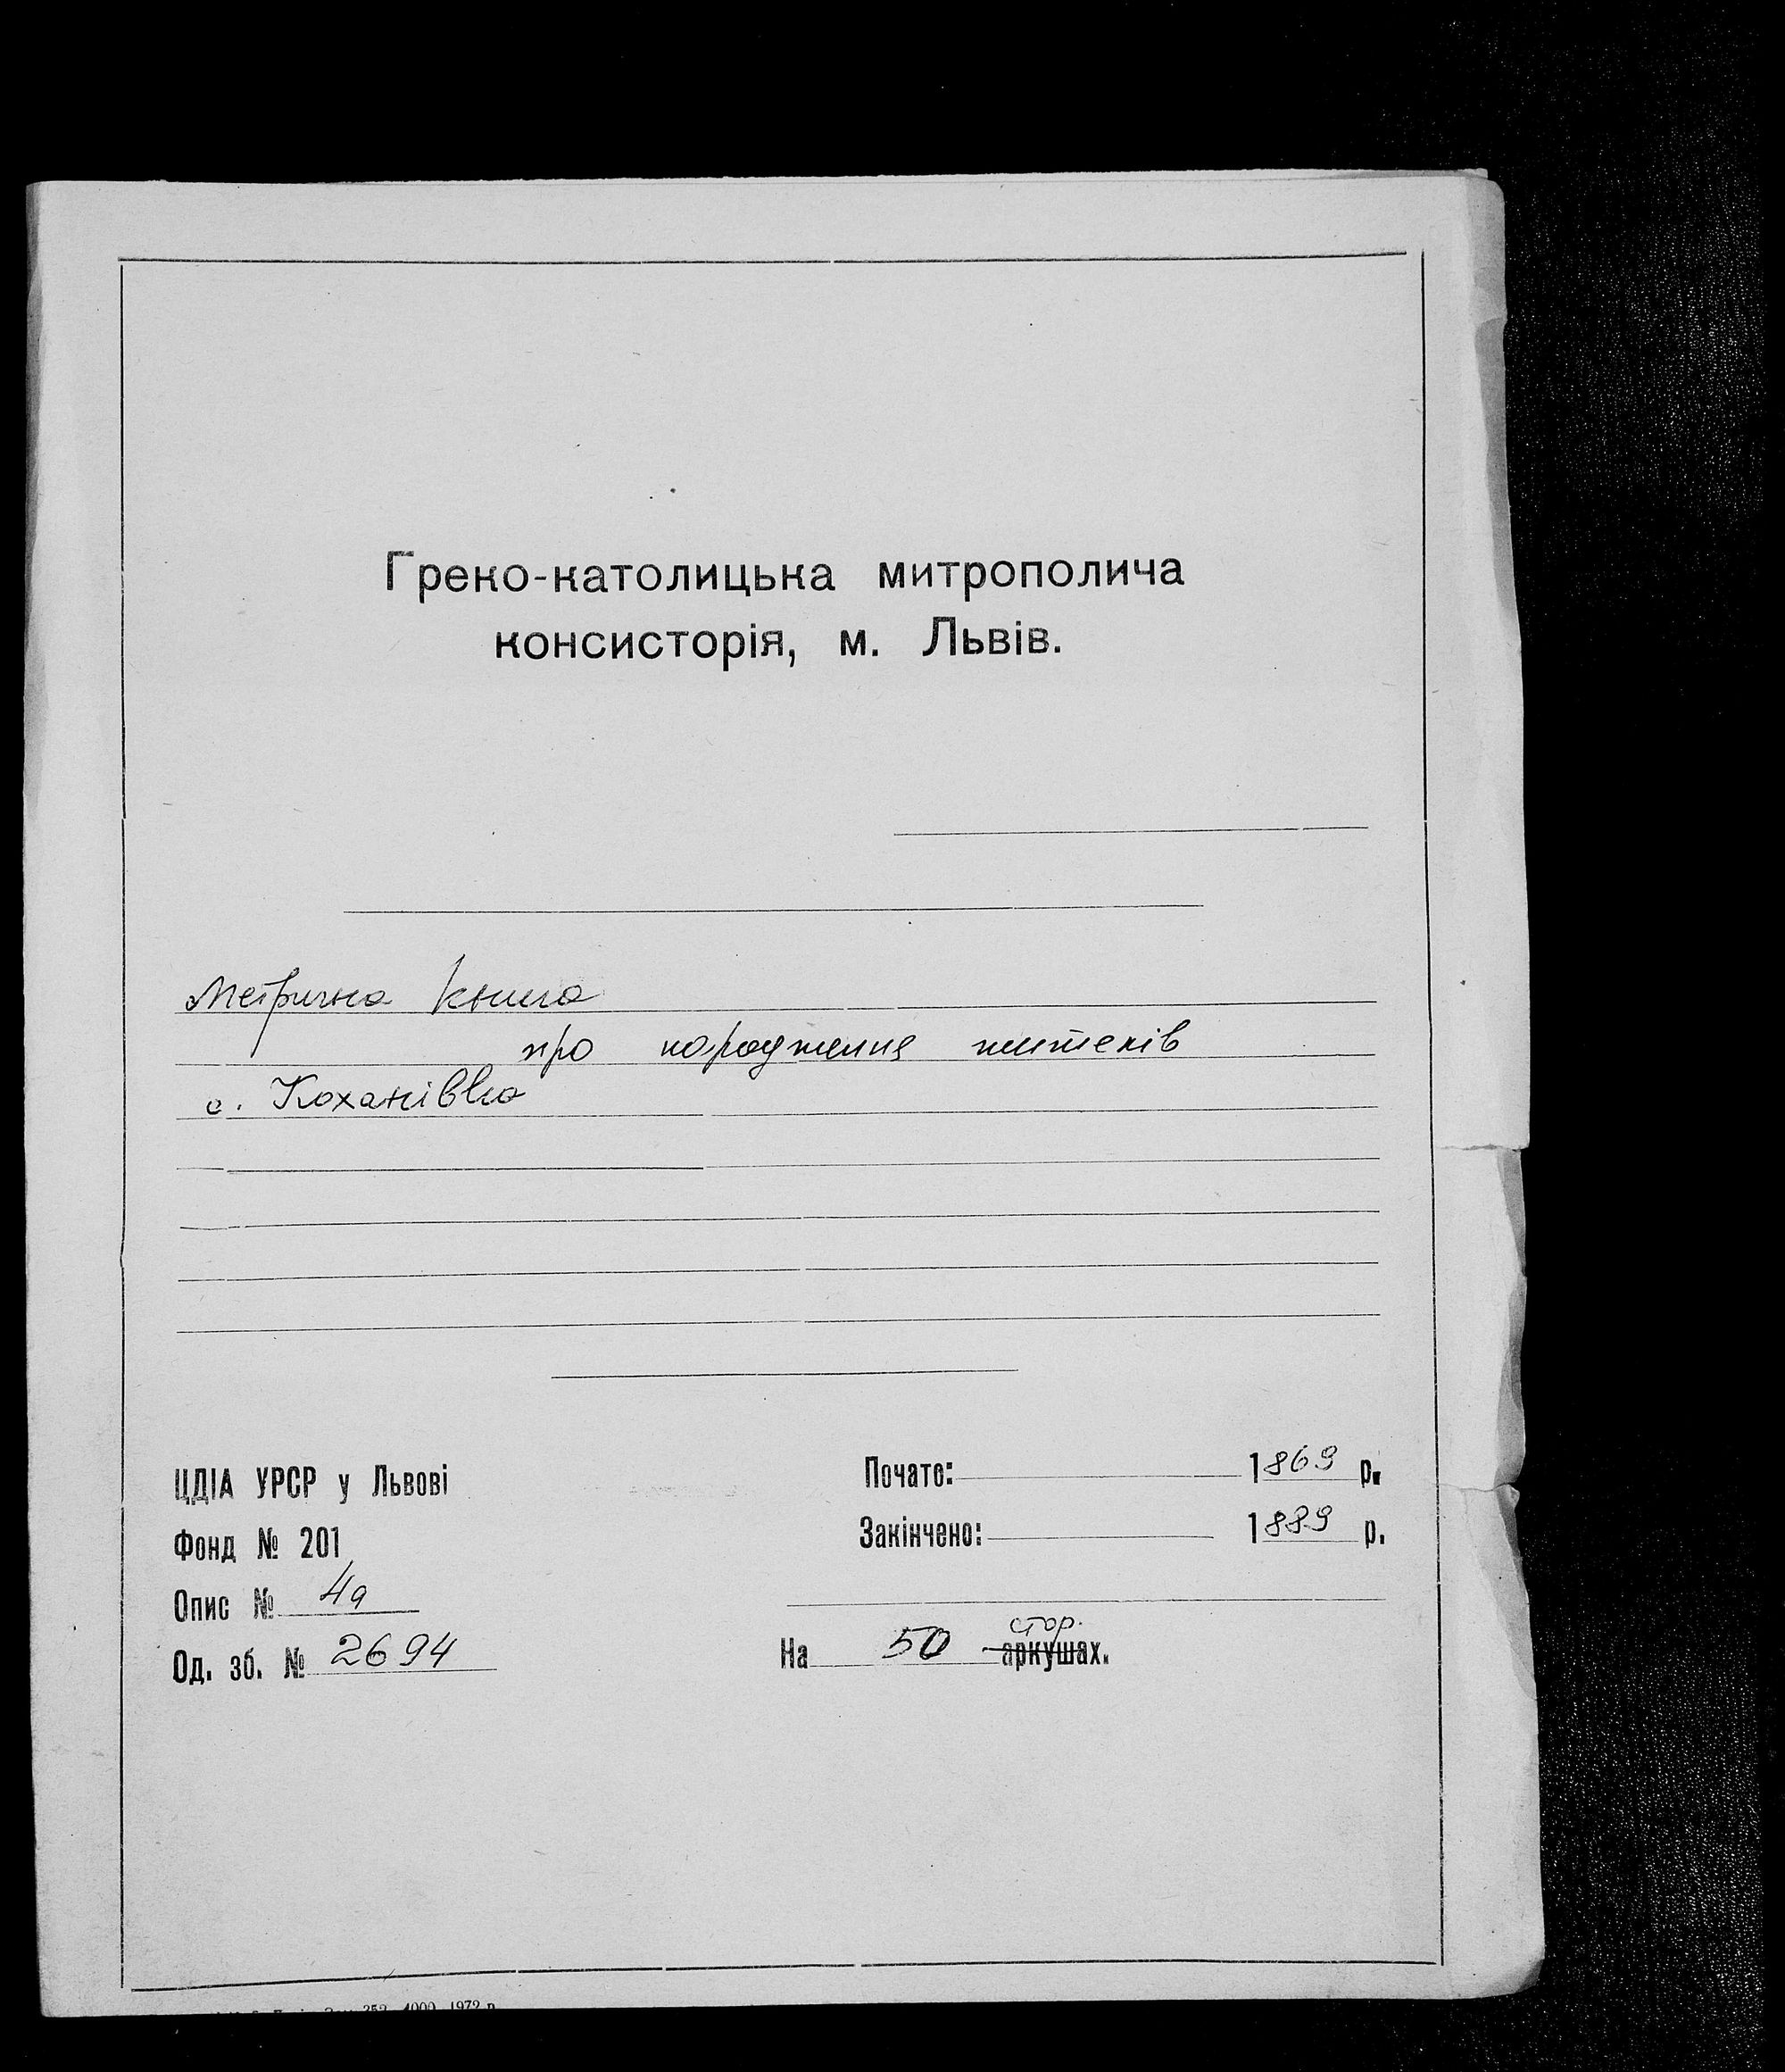 Греко-католицька митрополича
консисторія, м. Львів.
Метрична книга
про народження жителів
с. Коханівка
ЦДІА УРСР у Львові
Фонд № 201
Опис № 4а
Од. зб. № 2694
Почато: 1869 р.
Закінчено: 1889 р.
стор.
На 50 аркушах.
Зам. 352 4000 1972 р.